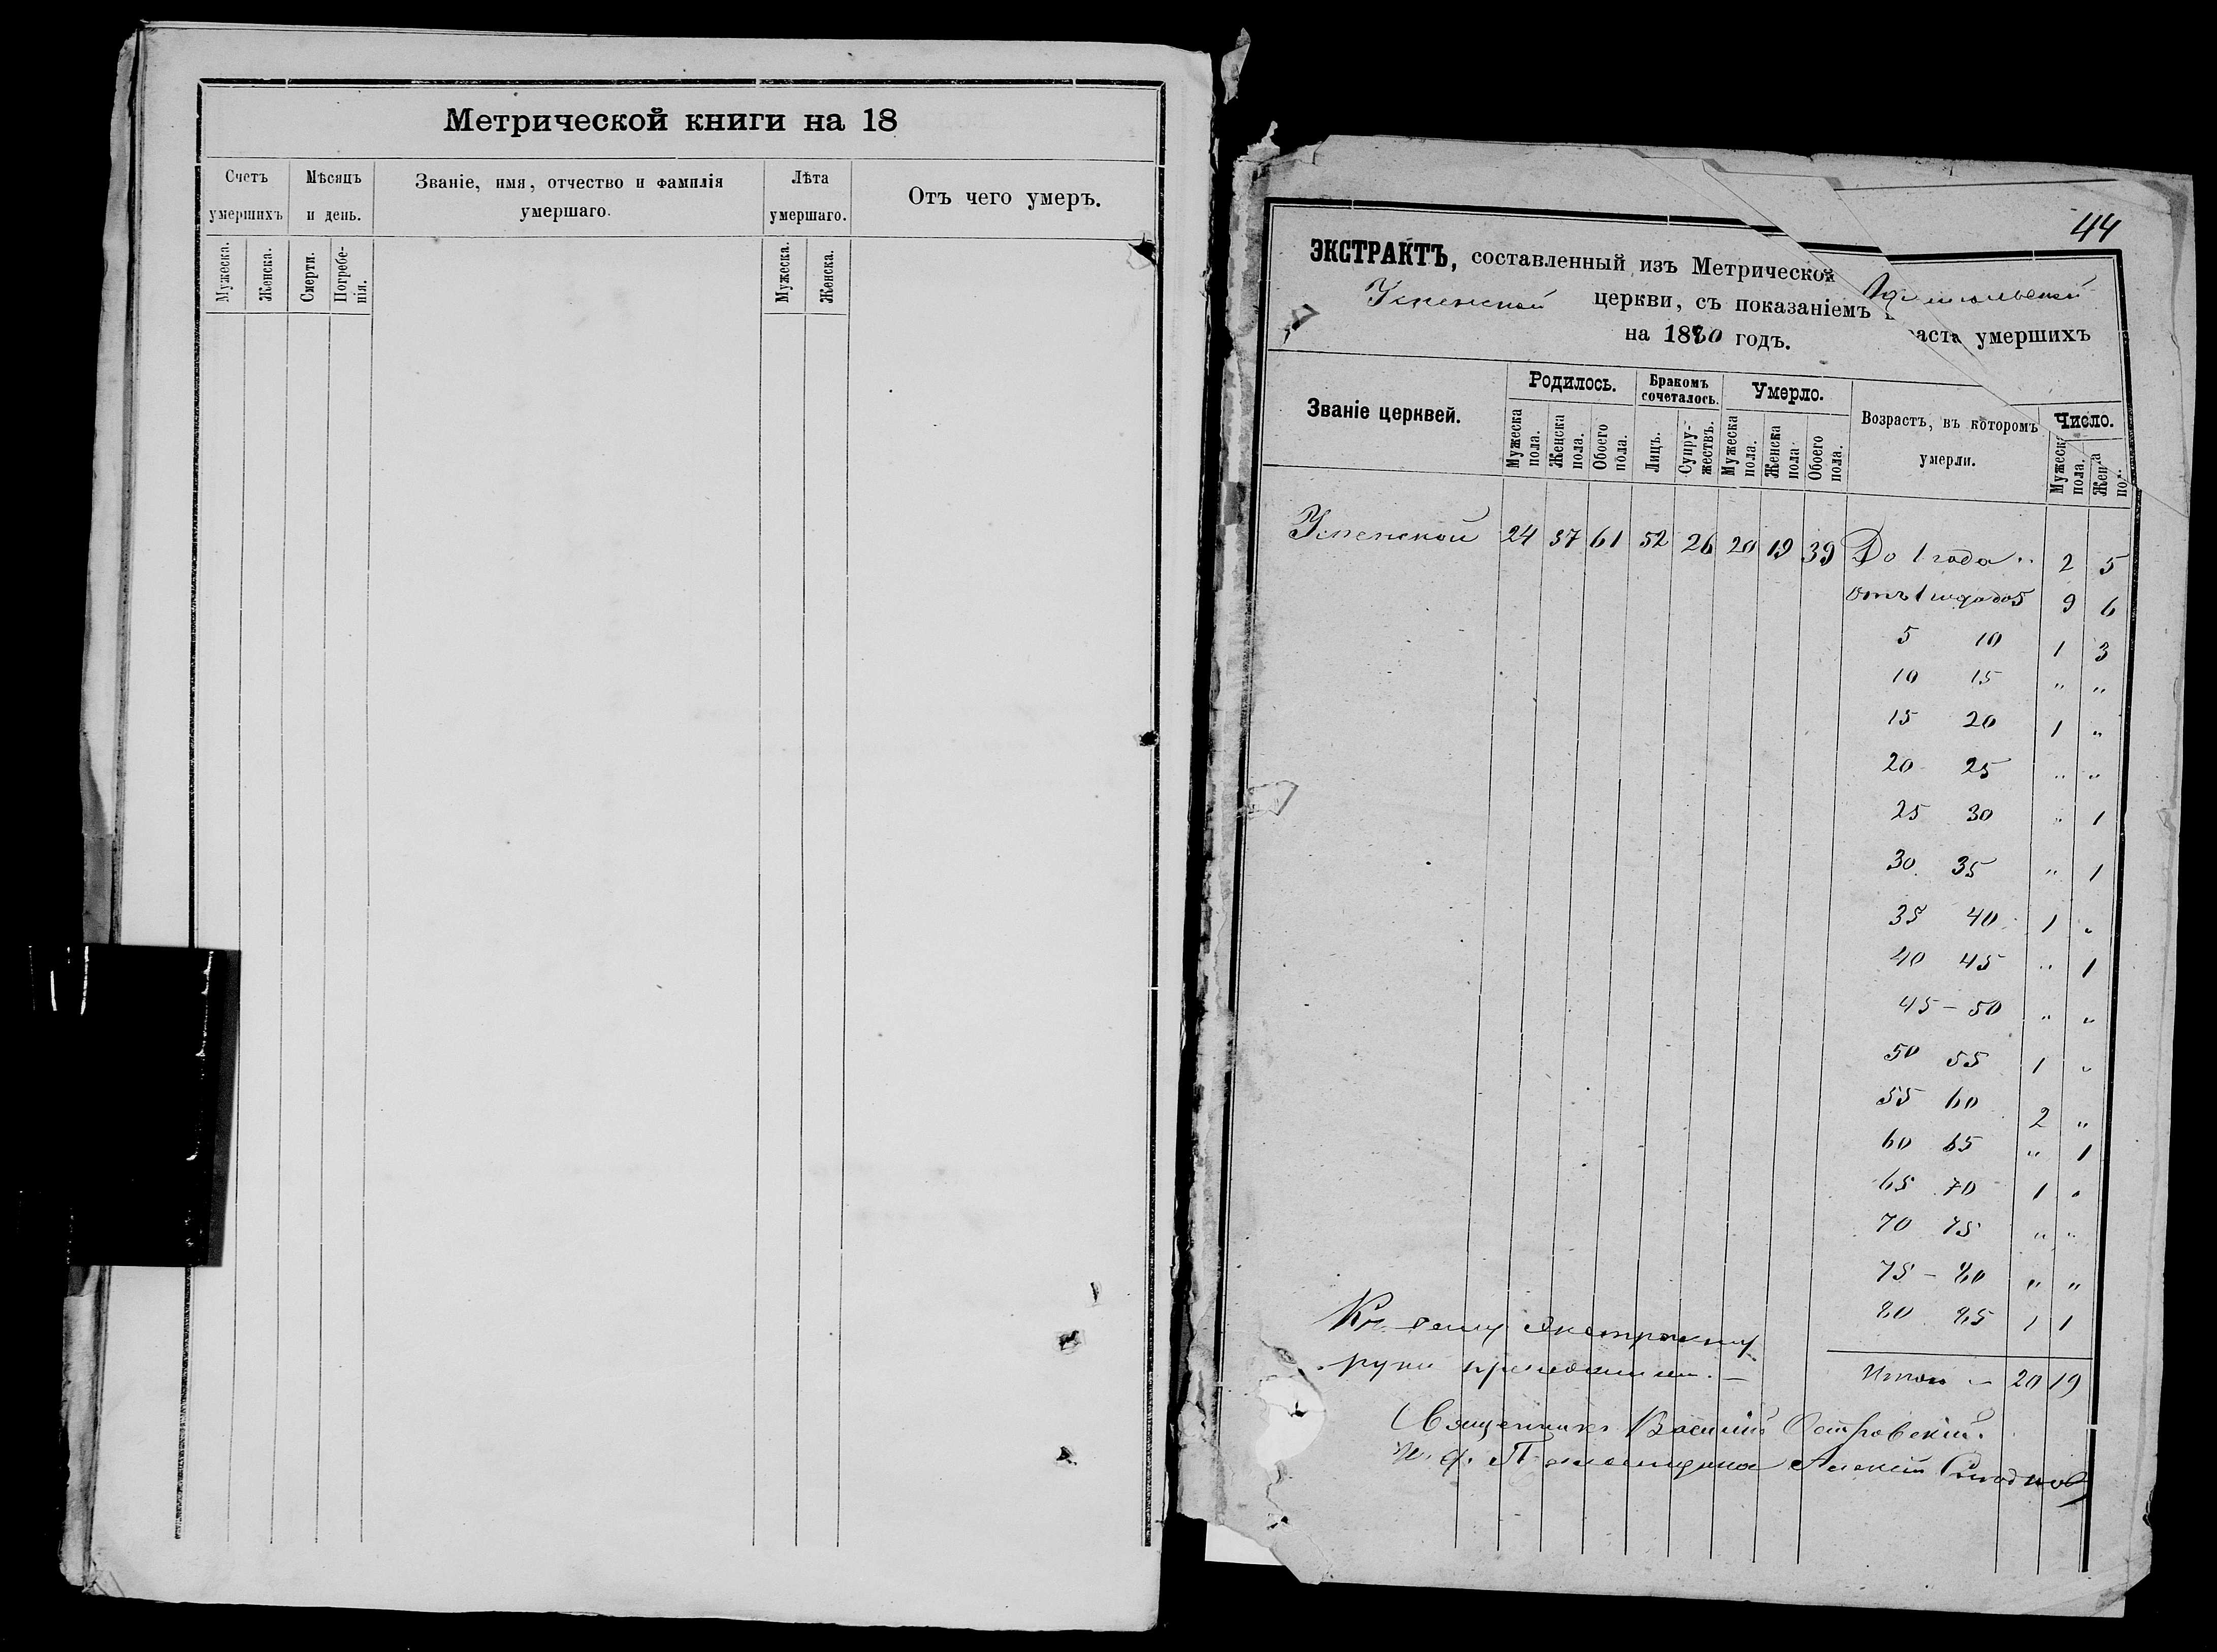 Метрической книги на 18
Счетъ умершихъ
Мѣсяцъ и день.
Званіе, имя, отчество и фамилія
умершаго.
Лѣта умершаго.
Отъ чего умеръ.
Мужеска.
Женска.
Смерти.
Погребе-
нія.
Мужеска.
Женска.
44
ЭКСТРАКТЪ, составленный изъ Метрической
Успенской церкви, съ показаніемъ
раста умершихъ
на 1880 годъ.
Званіе церквей.
Родилось.
Бракомъ
сочеталось.
Умерло.
Возрастъ, въ которомъ
умерли.
Число.
Мужеска
пола.
Женска
пола.
Обоего
пола.
Лицъ.
Супру-
жествъ.
Мужеска
пола.
Женска
пола.
Обоего
пола.
Мужеска
пола.
Успенской 24 37 61 52 26 20 19 39 До 1 года " 2 5
Отъ 1 года до 5 9 6
5 10 1 3
10 15 " "
15 20 1 "
20 25 " "
25 30 " 1
30 35 " 1
35 40 1 "
40 45 " 1
45 – 50 " "
50 55 1 "
55 60 2 "
60 65 " 1
65 70 1 "
70 75 " "
75 – 80 " "
80 85 1 1
Итого – 20 19
Къ сему экстракту
руки приложили. –
Священникъ Василій Островскій.
И. д. Псаломщика Алексѣй